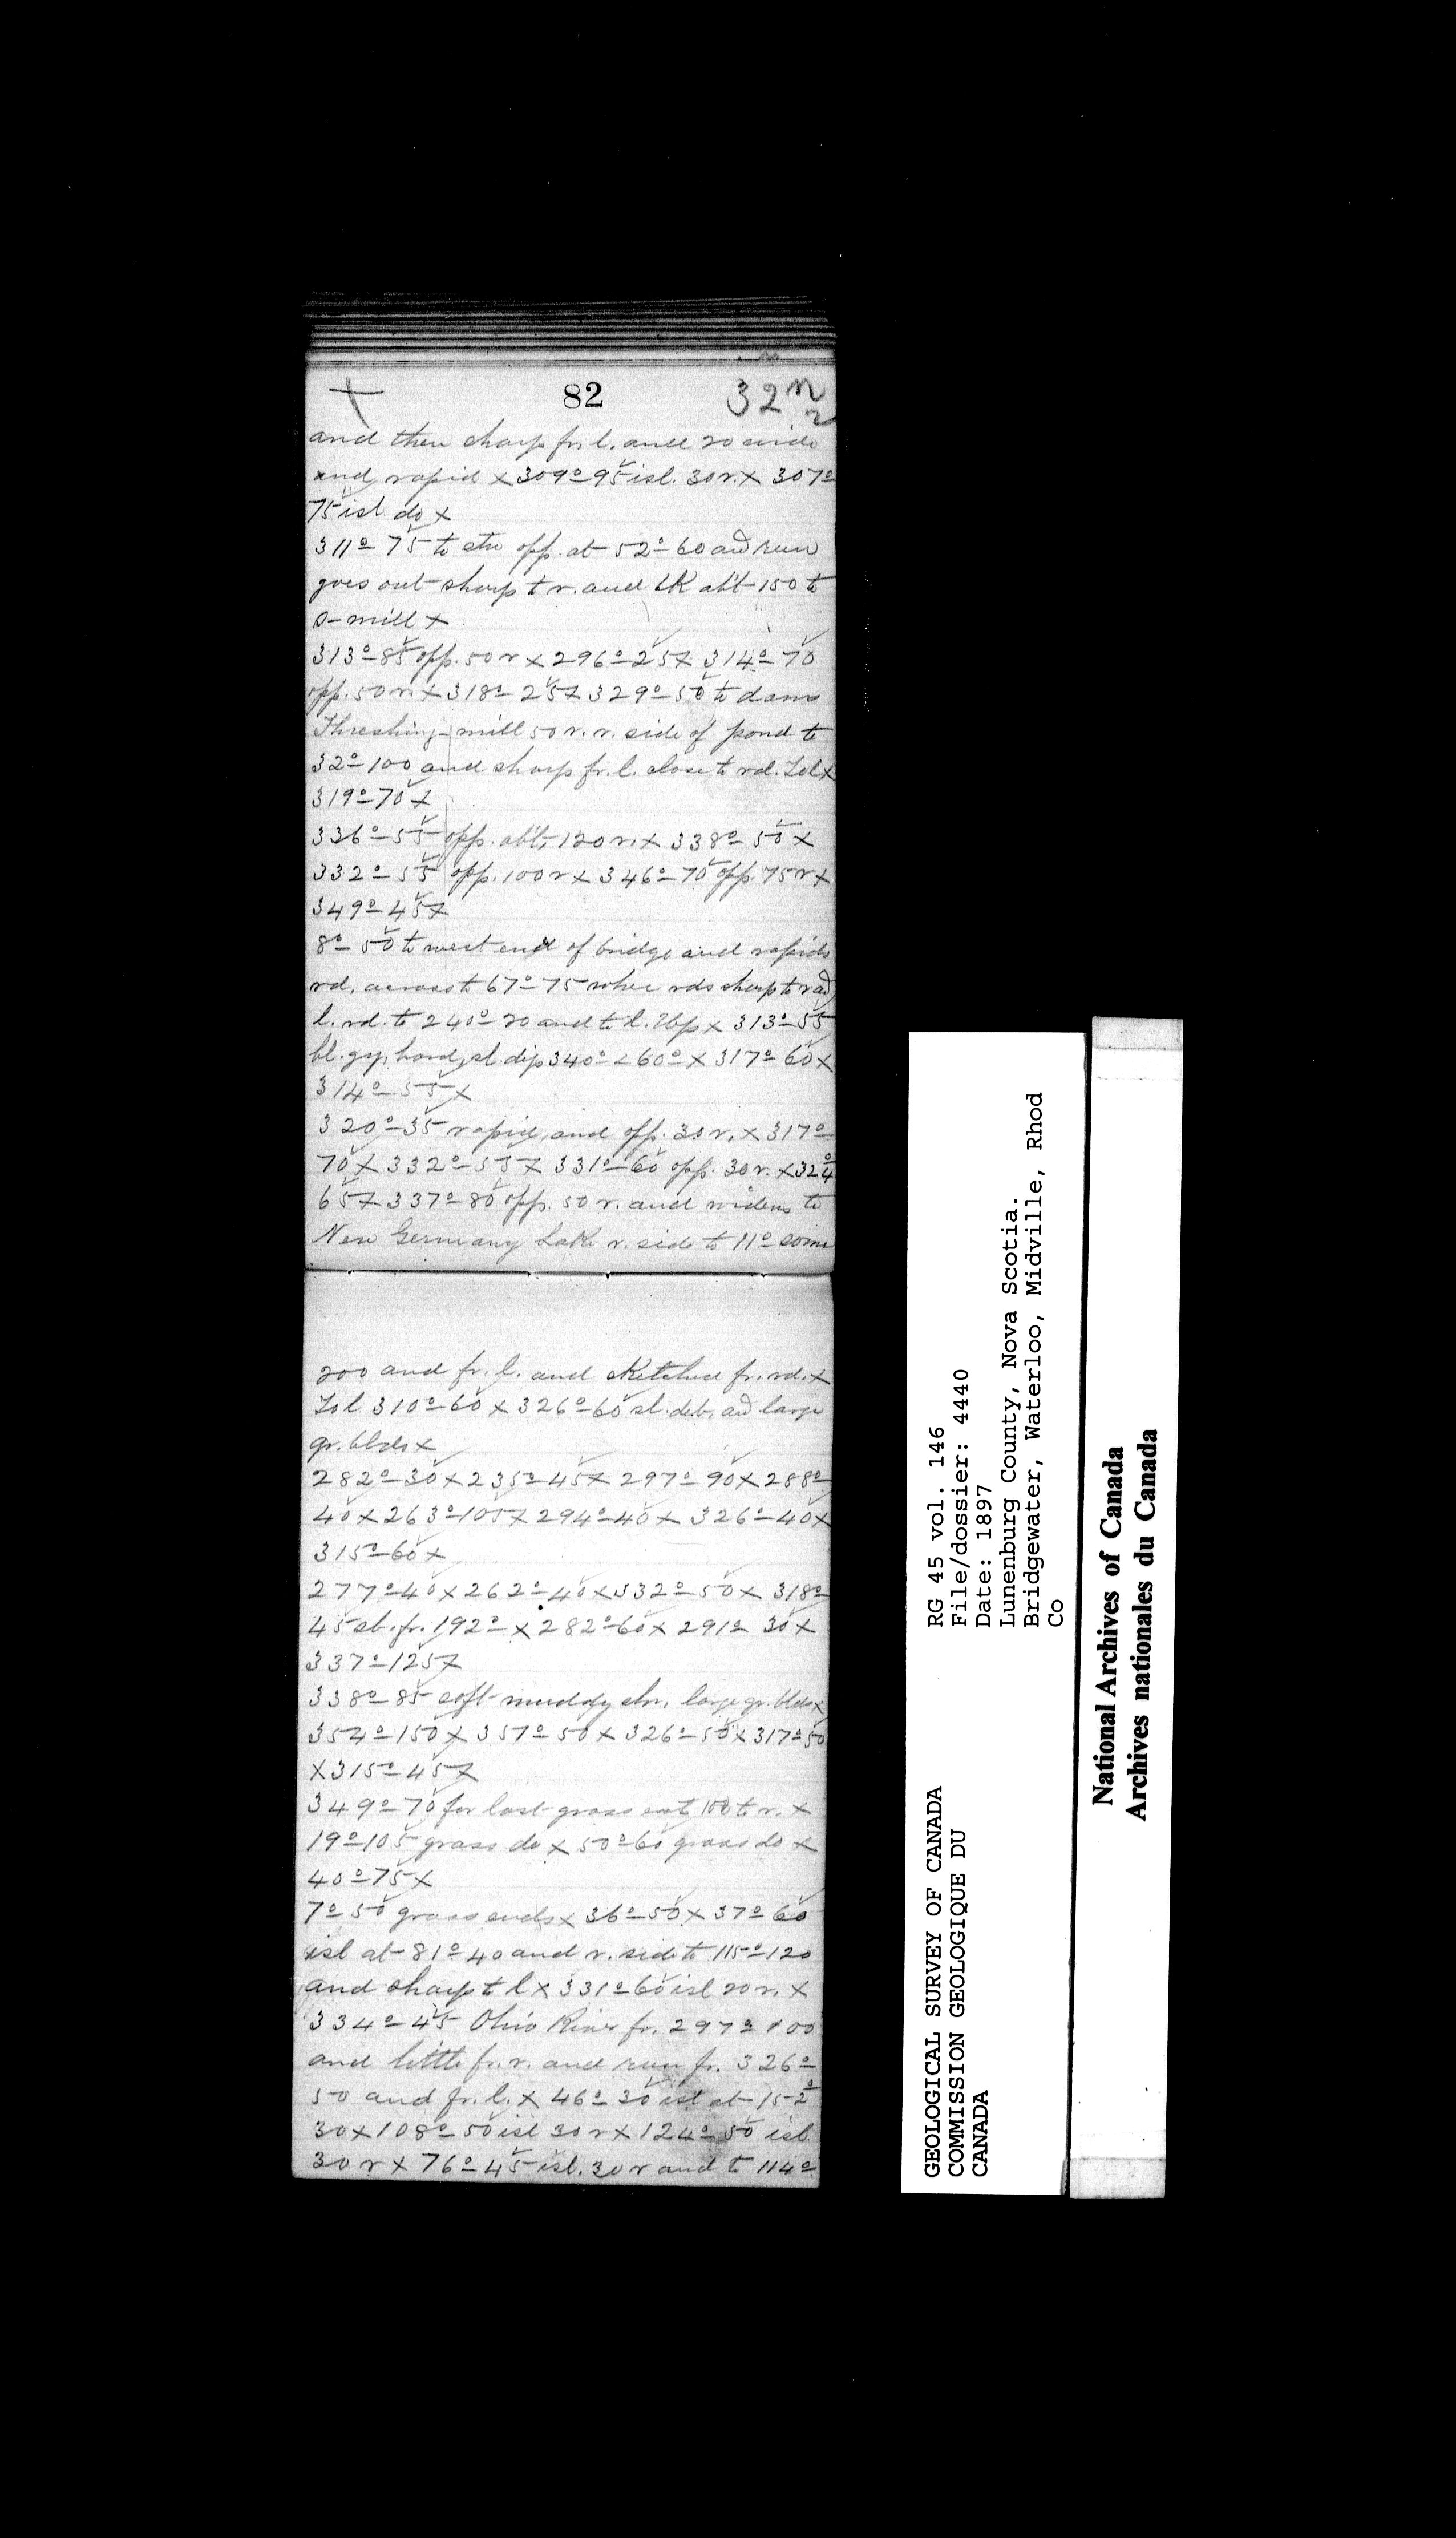 82 32 n
2
and then sharp fr. l. and 20 wide
and rapid x 309° 95 isl. 30 r. x 307°
75 isl do x
311° 75 to str opp. at 52° 60 and run
goes out sharp to r. and LK abt 150 to
s-mill x
313° 85 opp. 50 r x 296° 25 x 314° 70
opp. 50 r. x 318° 25 x 329° 50 to dam
Threshing-mill 50 r. r. side of pond to
32° 100 and sharp fr. l. close to rd. Isl x
319° 70 x
336° 55 opp. abt, 120 r. x 338° 50 x
332° 55 opp. 100 r x 346° 70 opp. 75 r x
349° 45 x
8° 50 to west end of bridge and rapids
rd. across to 67° 75 where rds sharp to r and
l. rd. to 240° 20 and to l. x 313° 55
bl. gy, hard, sl. dip 340° < 60° x 317° 60 x
314° 55 x
320° 35 rapid, and opp. 30 r. x 317°
70 x 332° 55 x 331° 60 opp. 30 r. x 324°
65 x 337° 80 opp. 50 r. and widens to
New Germany Lake r. side to 11° some
200 and fr. l. and sketched fr. rd. x
Isl 310° 60 x 326° 60 sl. deb. and large
gr. blds x
282° 30 x 235° 45 x 297° 90 x 288°
40 x 263° 105 x 294° 40 x 326° 40 x
315° 60 x
277° 40 x 262° 40 x 332° 50 x 318°
45 sb. fr. 192° x 282° 60 x 291° 30 x
337° 125 x
338° 85 soft muddy shr. large gr. blds x
354° 150 x 357° 50 x 326° 50 x 317° 50
x 315° 45 x
349° 70 for last grass out 100 to r. x
19° 105 grass do x 50° 60 grass do x
40° 75 x
7° 50 grass ends x 36° 50 x 37° 60
isl at 81° 40 and r. side to 115° 120
and sharp to l x 331° 60 isl 20 r. x
334° 45 Ohio River fr. 297° 100
and little fr. r. and run fr. 326°
50 and fr. l. x 46° 30 isl at 152°
30 x 108° 50 isl 30 r x 124° 50 isl
30 r x 76° 45 isl. 30 r and to 114°
GEOLOGICAL SURVEY OF CANADA
COMMISSION GEOLOGIQUE DU
CANADA
RG 45 vol. 146
File/dossier: 4440
Date: 1897
Lunenburg County, Nova Scotia.
Bridgewater, Waterloo, Midville, Rhod
Co
National Archives of Canada
Archives nationales du Canada